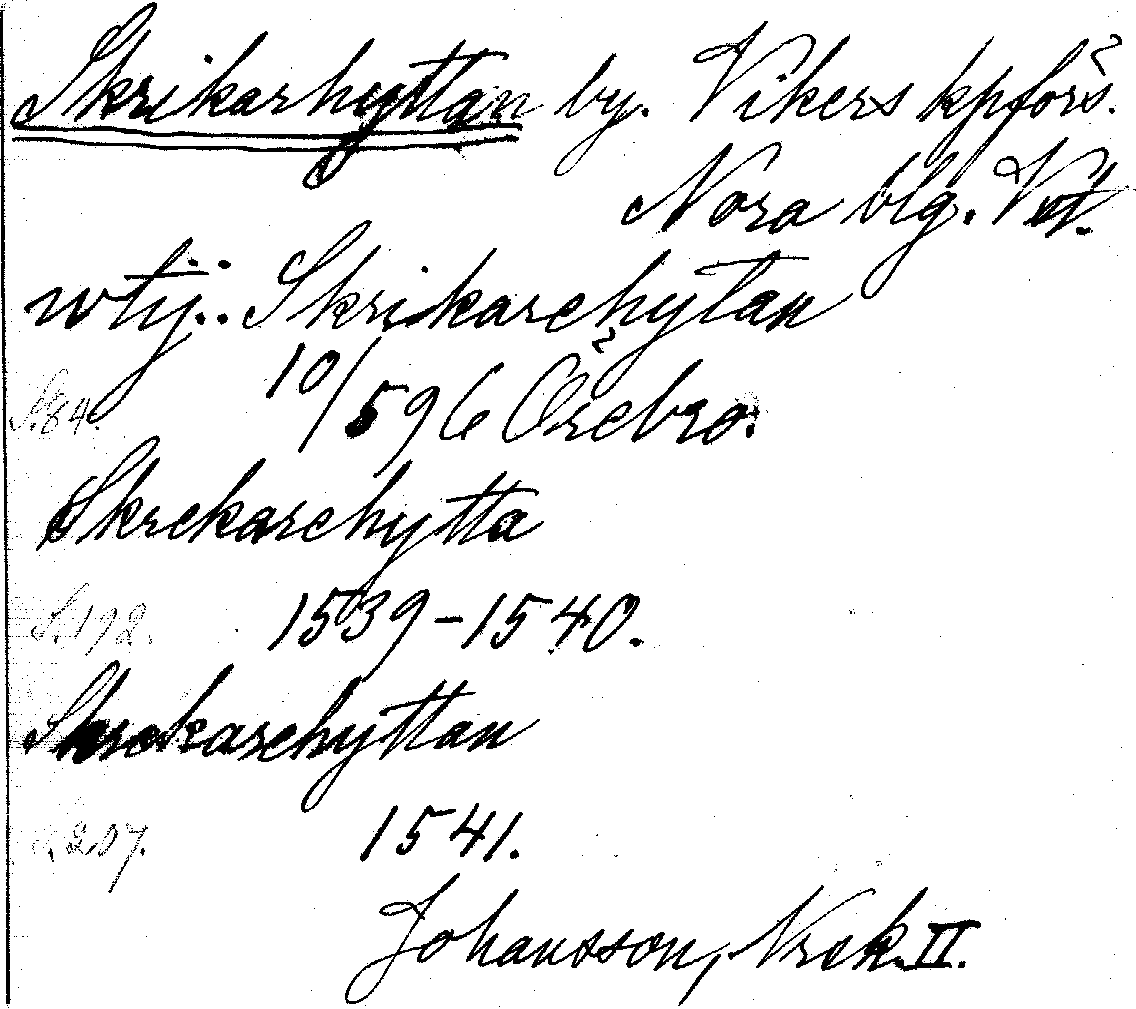 Skrikarhyttan by. Vikers kpförs.
Nora blg. Vstm.
wtÿ.: Skrikarehytan
10/596 Örebro.
S.84.
Skrekarehytta
S.192. 1539-1540.
Skrekarehyttan
S.207. 1541.
Johansson, Nrek. II.